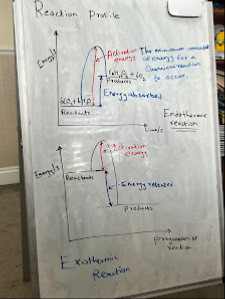 Reaction Profile
Energy/J
Activation energy
The minimum amount of energy for a chemical reaction to occur.
Products
Energy absorbed
Reactants
Time/s
Endothermic reaction
Energy/J
Activation energy
Reactants
Energy released
Products
progress of reaction
Exothermic
Reaction